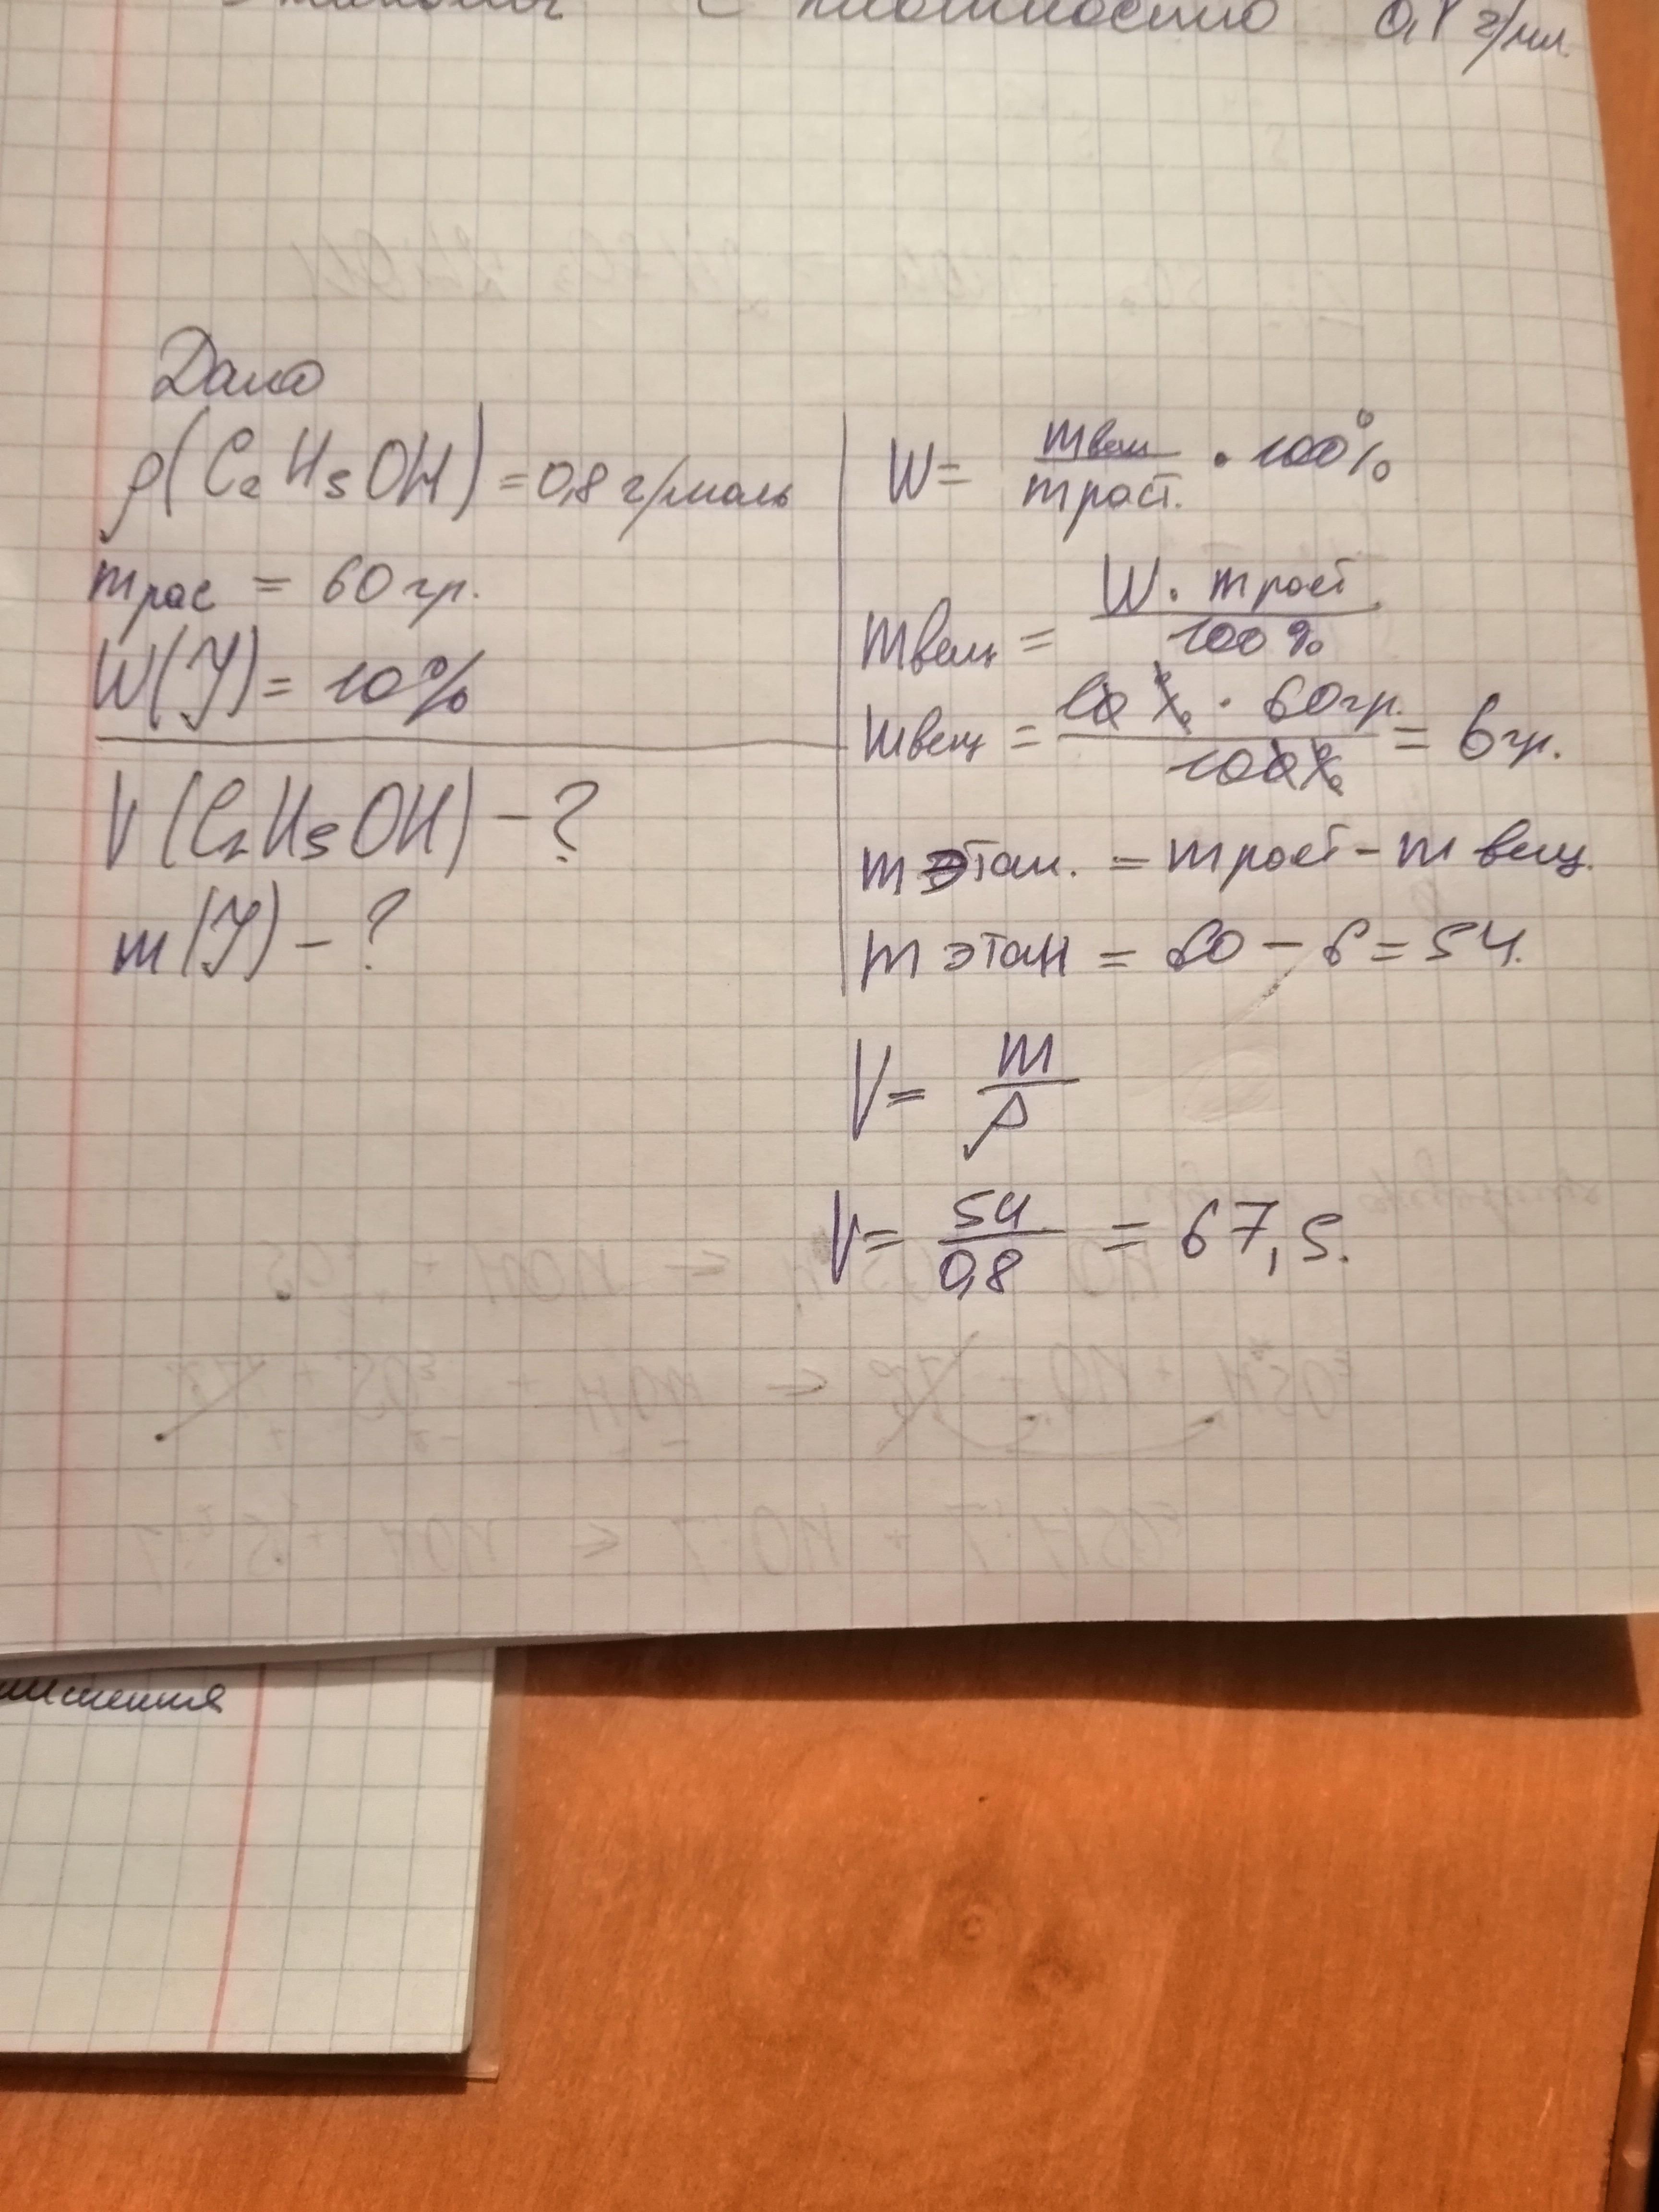 с плотностью 0,8 г/мл.
Дано
ρ(C₂H₅OH) = 0,8 г/моль
mрас = 60 гр.
W(J) = 10%
V(C₂H₅OH) - ?
m(J) - ?
W = mвещ/mраст. · 100%
mвещ = W · mраст/100%
mвещ = 10% · 60гр./100% = 6гр.
mэтан. = mраст - mвещ.
mэтан = 60 - 6 = 54.
V = m/ρ
V = 54/0,8 = 67,5.